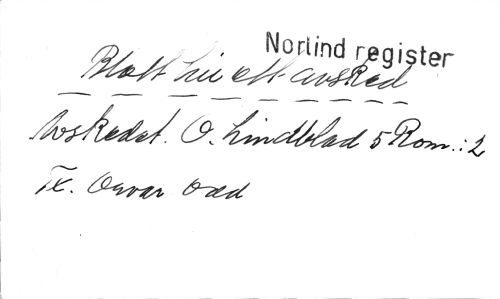 Norlind register
Blott hie ett avsked
Avskedet. O. Lindblad 5 Rom.:2
Tx. Orvar Odd